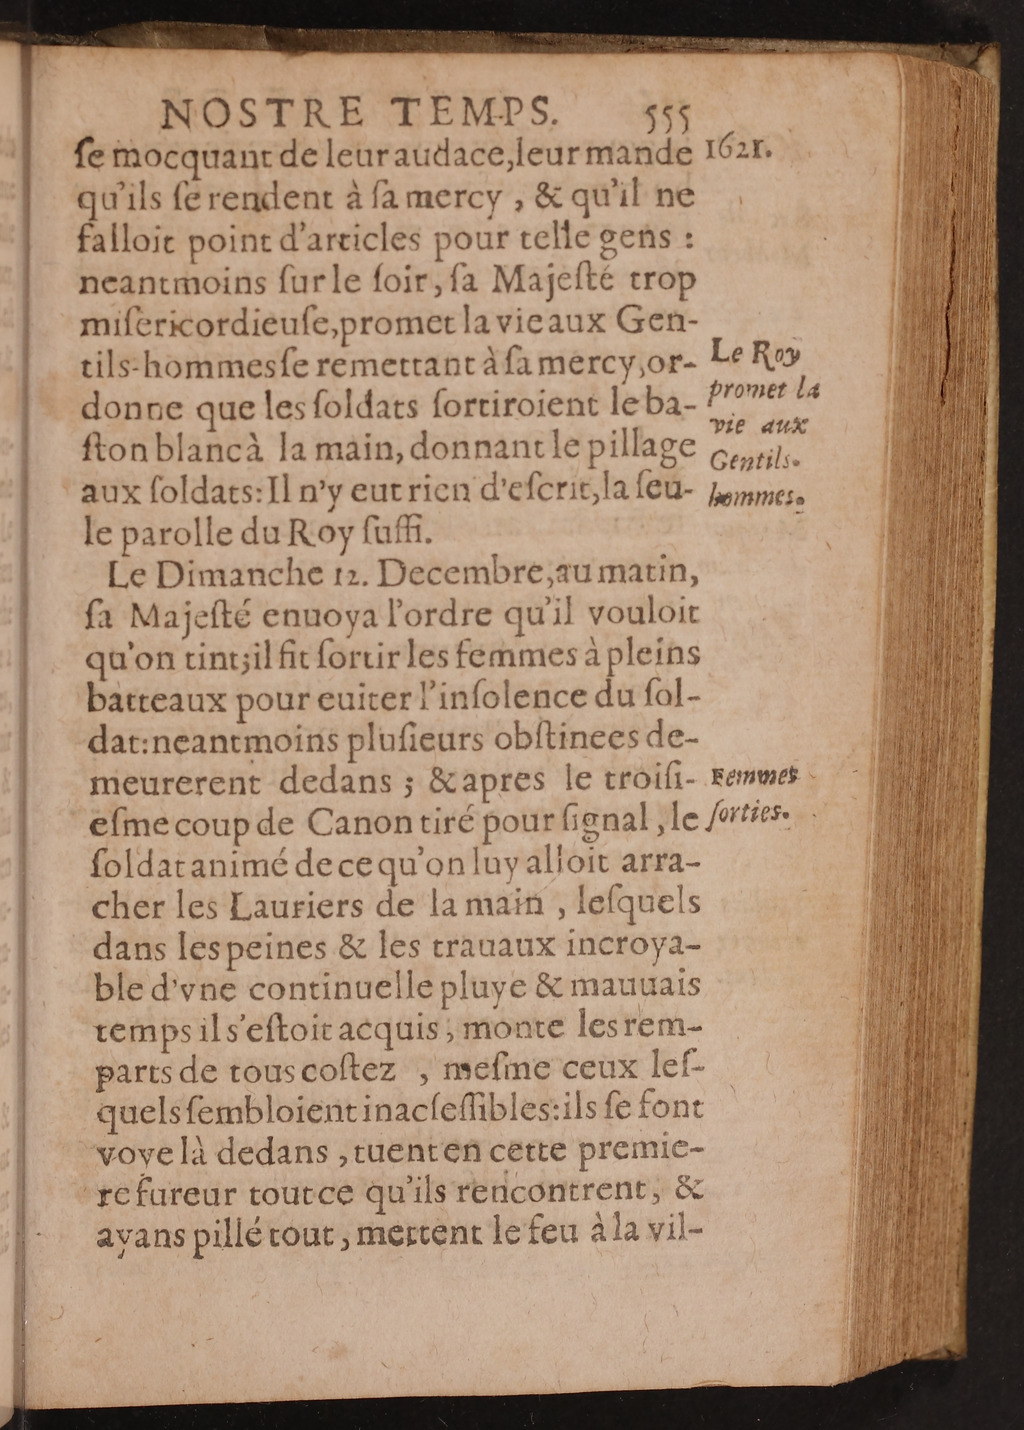 NOSTRE TEMPS. 555
ſe mocquant de leur audace, leur mande 1621.
qu'ils ſe rendent à ſa mercy , & qu'il ne
falloit point d'articles pour telle gens :
neantmoins ſur le ſoir, ſa Majeſté trop
miſericordieuſe, promet la vie aux Gen-
tils-hommes ſe remettant à ſa mercy, or-
donne que les ſoldats ſortiroient le ba-
ſton blanc à la main, donnant le pillage
aux ſoldats: Il n'y eut rien d'eſcrit, la ſeu-
le parolle du Roy ſuffi.
Le Roy
promet la
vie aux
Gentils-
hommes.
Le Dimanche 12. Decembre, au matin,
ſa Majeſté enuoya l'ordre qu'il vouloit
qu'on tint; il fit ſortir les femmes à pleins
batteaux pour euiter l'inſolence du ſol-
dat: neantmoins pluſieurs obſtinees de-
meurerent dedans ; & apres le troiſi-
eſme coup de Canon tiré pour ſignal , le
ſoldat animé de ce qu'on luy alloit arra-
cher les Lauriers de la main , leſquels
dans les peines & les trauaux incroya-
ble d'vne continuelle pluye & mauuais
temps il s'eſtoit acquis, monte les rem-
parts de tous coſtez , meſme ceux leſ-
quels ſembloient inacſeſſibles: ils ſe font
voye là dedans , tuent en cette premie-
re fureur tout ce qu'ils rencontrent, &
ayans pillé tout, mettent le feu à la vil-
Femmes
ſorties.